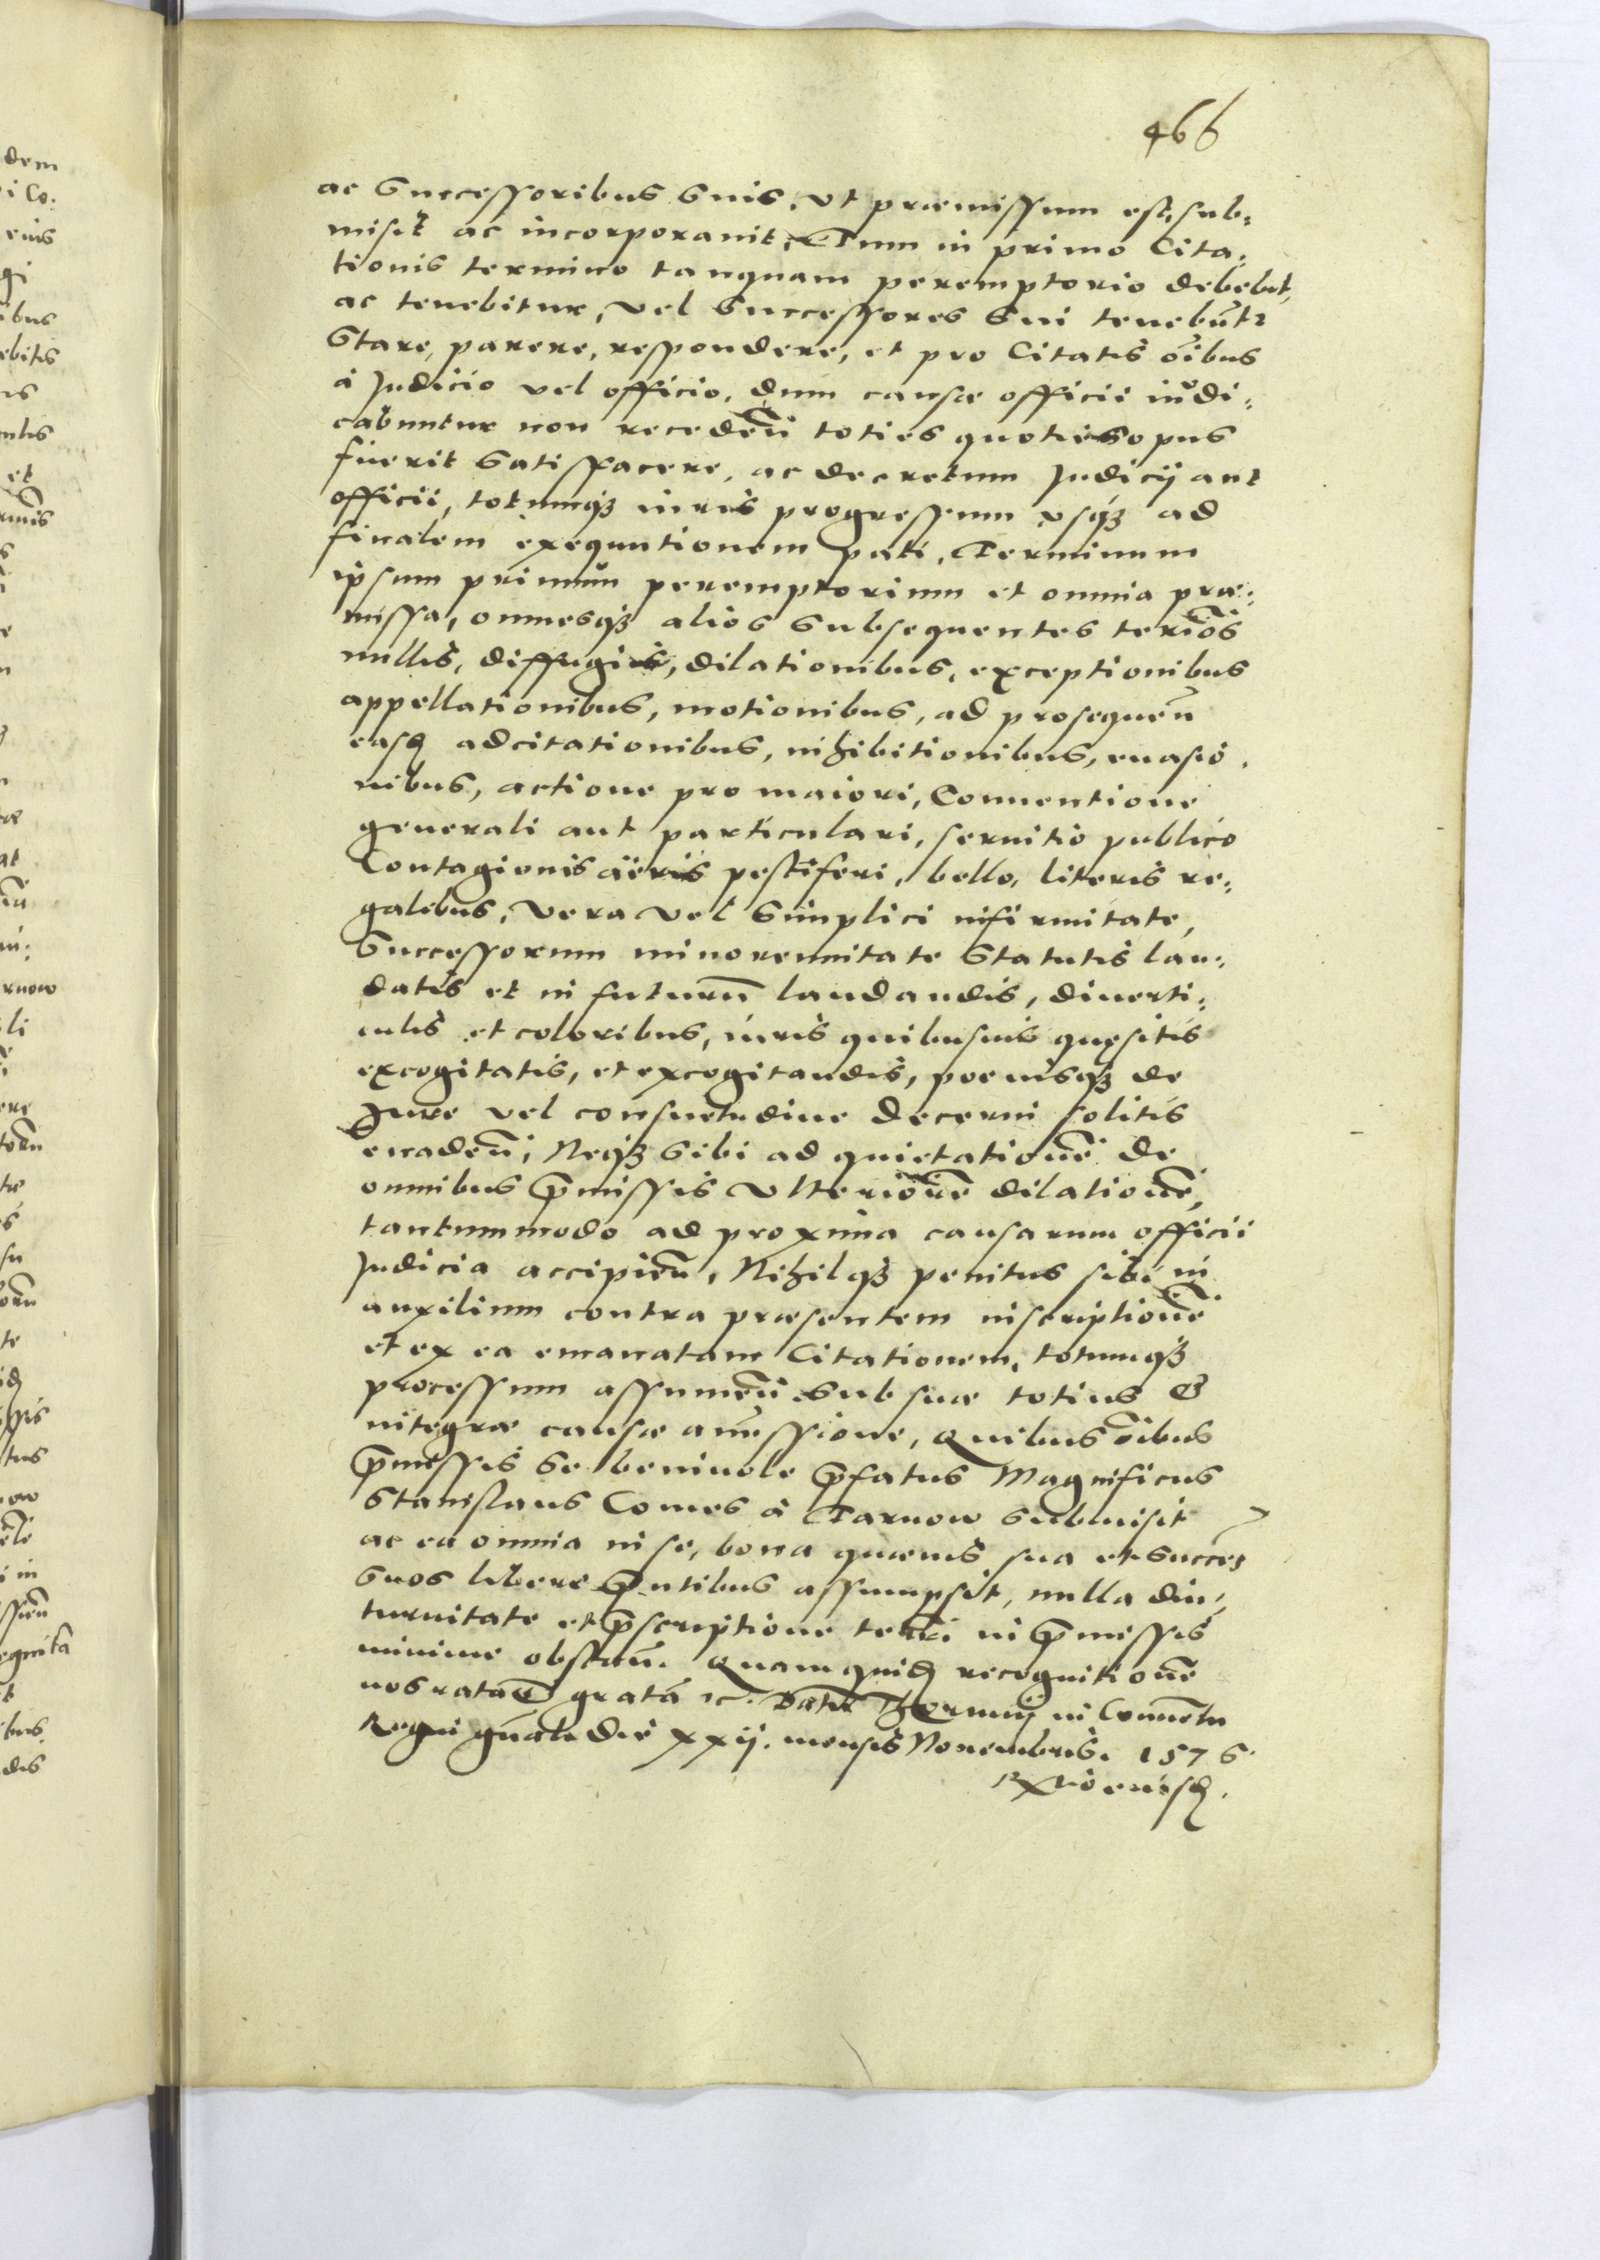 466
ac Successoribus Suis, vt præmissum est, sub:
misit ac incorporauit, Tum in primo Cita:
tionis termino tanquam peremptorio debebit,
ac tenebitur, vel Successores Sui tenebūtr
Stare, parere, respondere, et pro Citatis oībus
à Judicio vel officio, dum causæ officii iudi:
cabuntur non recedeñ toties quoties opus
fuerit Satisfacere, ac decretum Judicij aut
officii, totumqȝ iuris progressum vsqȝ ad
finalem exequutionem pati, Terminum
ipsum primum peremptorium et omnia præ:
missa, omnesqȝ alios Subsequentes teriōs
nullis, diffugiis, dilationibus, exceptionibus
appellationibus, motionibus, ad prosequeñ
easd adcitationibus, inhibitionibus, euasio:
nibus, actione pro maiori, Conuentione
generali aut particulari, seruitio publico
Contagionis aëris pestiferi, bello, literis re:
galibus, vera vel Simplici infirmitate,
Successorum minorennitate Statutis lau:
datis et in futurū laudandis, diuerti:
culis et coloribus, iuris quibusuis quęsitis
excogitatis, et excogitandis, poenisqȝ de
Jure vel consuetudine decerni solitis
euadeñ, Neqȝ Sibi ad quietationē de
omnibus p̄missis vlteriorē dilationē,
tantummodo ad proxima causarum officii
Judicia accipieñ, Nihilqȝ penitus sibi in
auxilium contra præsentem inscriptionē
et ex ea emanatam Citationem, totumqȝ
processum assumeñ Sub suæ totius &
integræ causæ amissione, Quibus oībus
p̄missis Se beniuole p̄fatus Magnificus
Stanislaus Comes à Tarnow Submisit
ac ea omnia in se, bona quæuis sua et Succes
Suos libere p̄ntibus assumpsit, nulla diu:
turnitate et p̄scriptione terri in p̄missis
minime obstañ. Quam quid recognitionē
nos ratā gratā &c. Datum Thorunij in Conuētu
Regni gn̄ali die xxij. mensis Nouembris. 1576.